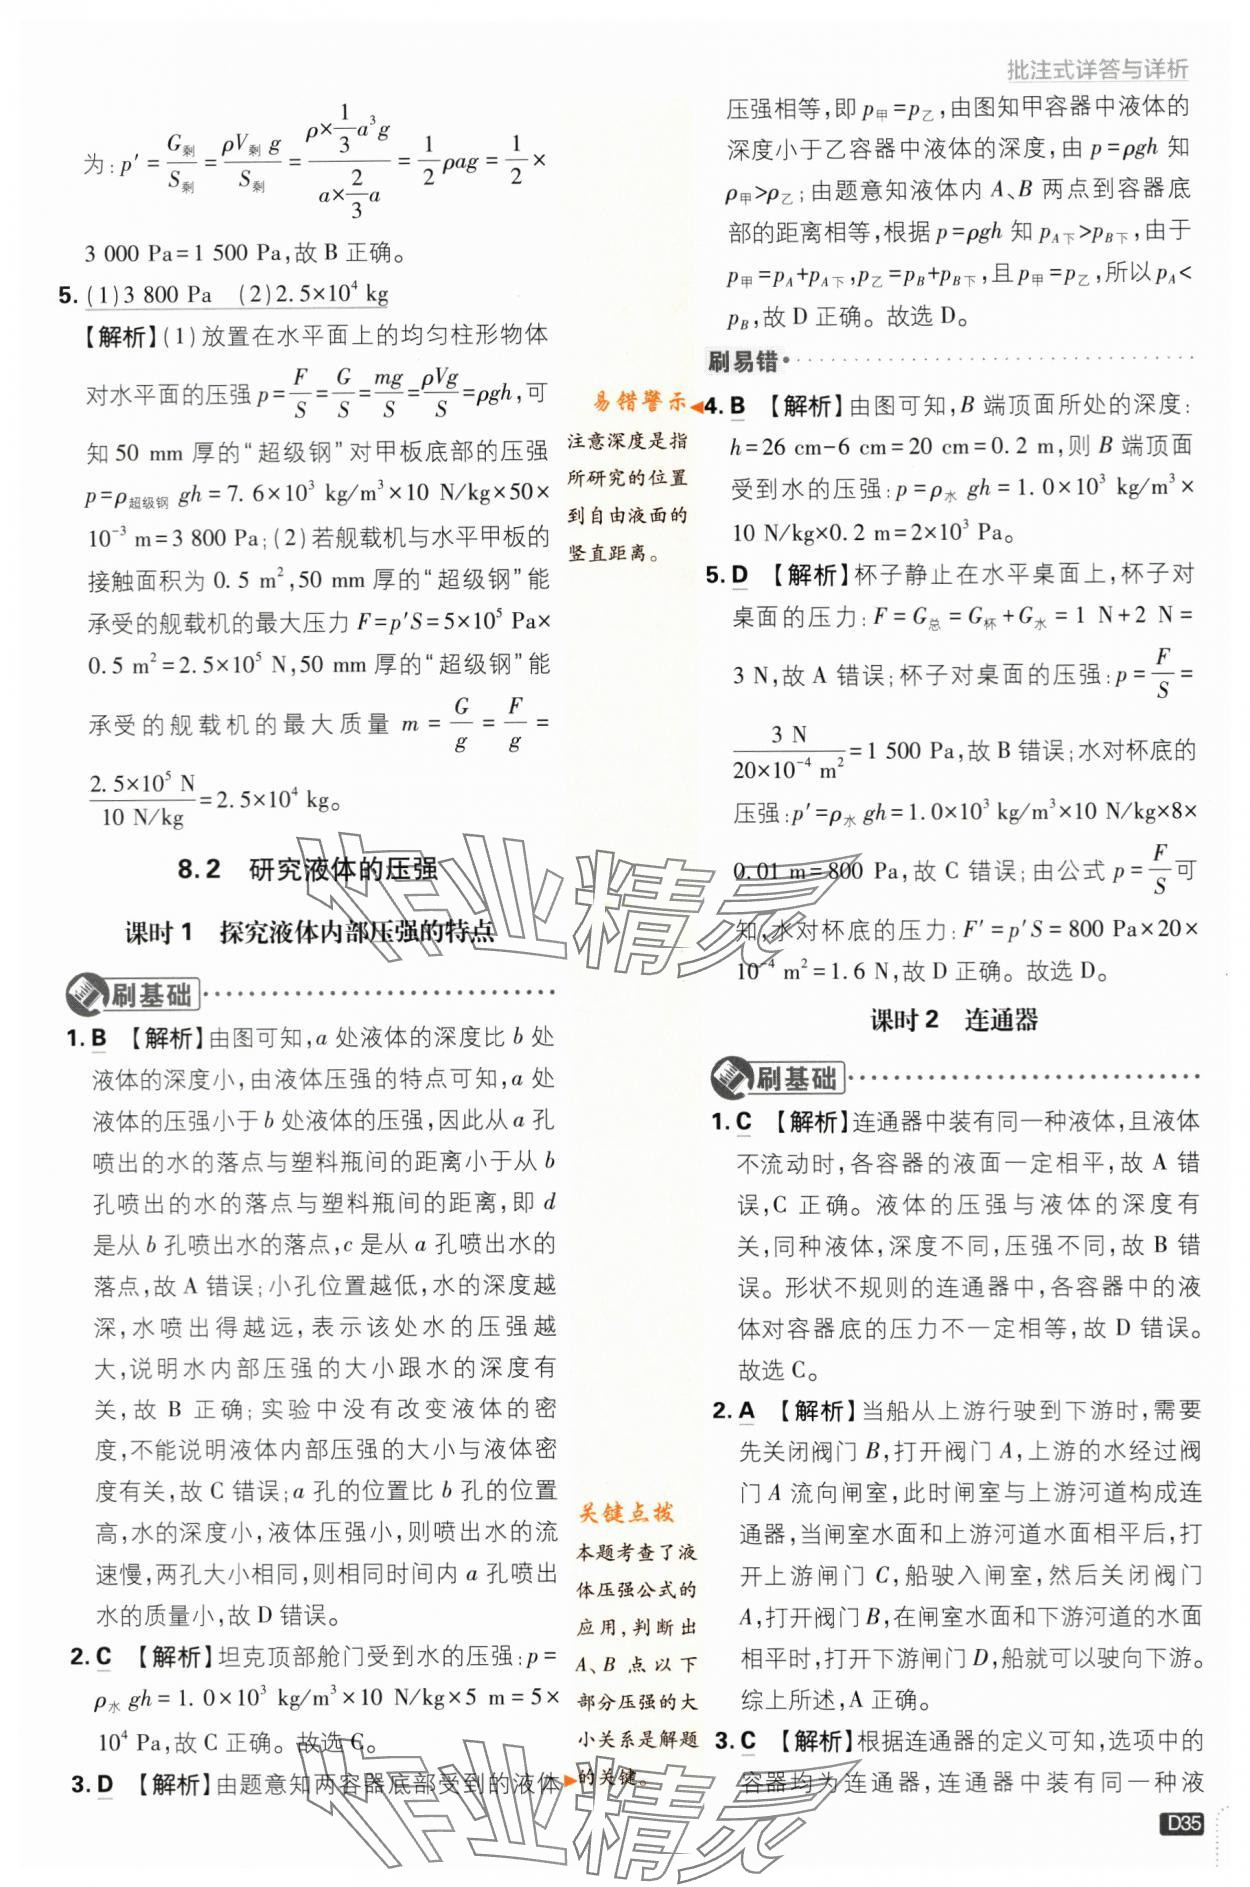 批注式详答与详析
为:p′=G剩/S剩=ρV剩 g/S剩=(ρ×1/3 a³g)/(a×2/3 a)=1/2 ρag=1/2×
3 000 Pa=1 500 Pa,故 B 正确。
5. (1)3 800 Pa (2)2.5×10⁴ kg
【解析】(1)放置在水平面上的均匀柱形物体
对水平面的压强 p=F/S=G/S=mg/S=ρVg/S=ρgh,可
知 50 mm 厚的“超级钢”对甲板底部的压强
p=ρ超级钢 gh=7.6×10³ kg/m³×10 N/kg×50×
10⁻³ m=3 800 Pa;(2)若舰载机与水平甲板的
接触面积为 0.5 m²,50 mm 厚的“超级钢”能
承受的舰载机的最大压力 F=p′S=5×10⁵ Pa×
0.5 m²=2.5×10⁵ N,50 mm 厚的“超级钢”能
承受的舰载机的最大质量 m=G/g=F/g=
2.5×10⁵ N/10 N/kg=2.5×10⁴ kg。
8.2 研究液体的压强
课时 1 探究液体内部压强的特点
刷基础
1. B 【解析】由图可知,a 处液体的深度比 b 处
液体的深度小,由液体压强的特点可知,a 处
液体的压强小于 b 处液体的压强,因此从 a 孔
喷出的水的落点与塑料瓶间的距离小于从 b
孔喷出的水的落点与塑料瓶间的距离,即 d
是从 b 孔喷出水的落点,c 是从 a 孔喷出水的
落点,故 A 错误;小孔位置越低,水的深度越
深,水喷出得越远,表示该处水的压强越
大,说明水内部压强的大小跟水的深度有
关,故 B 正确;实验中没有改变液体的密
度,不能说明液体内部压强的大小与液体密
度有关,故 C 错误;a 孔的位置比 b 孔的位置
高,水的深度小,液体压强小,则喷出水的流
速慢,两孔大小相同,则相同时间内 a 孔喷出
水的质量小,故 D 错误。
2. C 【解析】坦克顶部舱门受到水的压强:p=
ρ水 gh=1.0×10³ kg/m³×10 N/kg×5 m=5×
10⁴ Pa,故 C 正确。故选 C。
3. D 【解析】由题意知两容器底部受到的液体
易错警示
注意深度是指
所研究的位置
到自由液面的
竖直距离。
关键点拨
本题考查了液
体压强公式的
应用,判断出
A、B 点以下
部分压强的大
小关系是解题
的关键。
压强相等,即 p甲=p乙,由图知甲容器中液体的
深度小于乙容器中液体的深度,由 p=ρgh 知
ρ甲>ρ乙;由题意知液体内 A、B 两点到容器底
部的距离相等,根据 p=ρgh 知 pA下>pB下,由于
p甲=pA+pA下,p乙=pB+pB下,且 p甲=p乙,所以 pA<
pB,故 D 正确。故选 D。
刷易错
4. B 【解析】由图可知,B 端顶面所处的深度:
h=26 cm-6 cm=20 cm=0.2 m,则 B 端顶面
受到水的压强:p=ρ水 gh=1.0×10³ kg/m³×
10 N/kg×0.2 m=2×10³ Pa。
5. D 【解析】杯子静止在水平桌面上,杯子对
桌面的压力:F=G总=G杯+G水=1 N+2 N=
3 N,故 A 错误;杯子对桌面的压强:p=F/S=
3 N/20×10⁻⁴ m²=1 500 Pa,故 B 错误;水对杯底的
压强:p′=ρ水 gh=1.0×10³ kg/m³×10 N/kg×8×
0.01 m=800 Pa,故 C 错误;由公式 p=F/S可
知,水对杯底的压力:F′=p′S=800 Pa×20×
10⁻⁴ m²=1.6 N,故 D 正确。故选 D。
课时 2 连通器
刷基础
1. C 【解析】连通器中装有同一种液体,且液体
不流动时,各容器的液面一定相平,故 A 错
误,C 正确。液体的压强与液体的深度有
关,同种液体,深度不同,压强不同,故 B 错
误。形状不规则的连通器中,各容器中的液
体对容器底的压力不一定相等,故 D 错误。
故选 C。
2. A 【解析】当船从上游行驶到下游时,需要
先关闭阀门 B,打开阀门 A,上游的水经过阀
门 A 流向闸室,此时闸室与上游河道构成连
通器,当闸室水面和上游河道水面相平后,打
开上游闸门 C,船驶入闸室,然后关闭阀门
A,打开阀门 B,在闸室水面和下游河道的水面
相平时,打开下游闸门 D,船就可以驶向下游。
综上所述,A 正确。
3. C 【解析】根据连通器的定义可知,选项中的
容器均为连通器,连通器中装有同一种液
D35
作业精灵
作业精灵